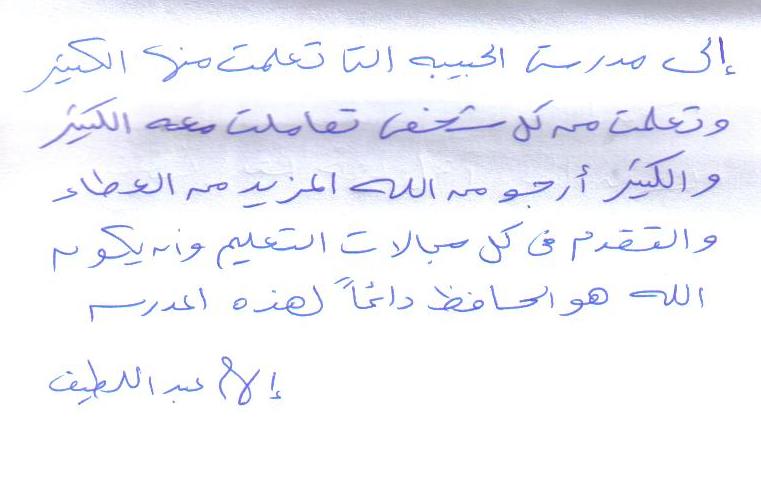 إلى مدرستى الحبيبه التا تعلمت منها الكثير
وتعلمت من كل شخص تعاملت معه الكثير
والكثير أرجو من الله المزيد من العطاء
والتقدم فى كل مجالات التعليم وأن يكون
الله هو الحافظ دائماً لهذه المدرسه
إلام عبد اللطيف